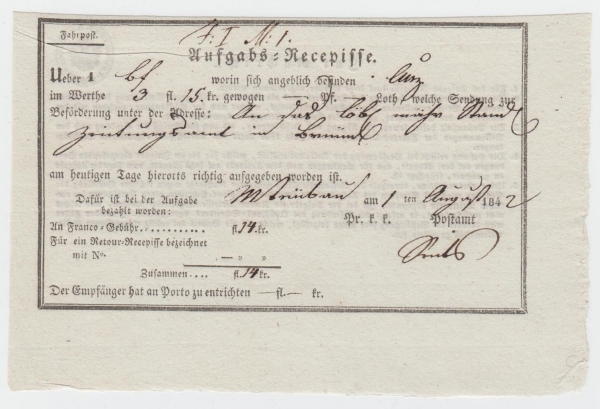 Fahrpost.
Aufgabs-Recepisse.
Ueber 1 bf worin sich angeblich befinden
im Werthe 3 fl. 15. kr. gewogen — Pf. — Loth, welche Sendung zur
Beförderung unter der Adresse: An das löbl mähr Stand
Zeitungsamt in Brünn
am heutigen Tage hierorts richtig aufgegeben worden ist.
Dafür ist bei der Aufgabe M Trübau am 1 ten August 1842
bezahlt worden: Pr. k. k. Postamt
An Franco-Gebühr.......... fl. 14 kr.
Für ein Retour-Recepisse bezeichnet
mit No. . — » — »
Zusammen.... fl. 14 kr.
Der Empfänger hat an Porto zu entrichten —fl.— kr.